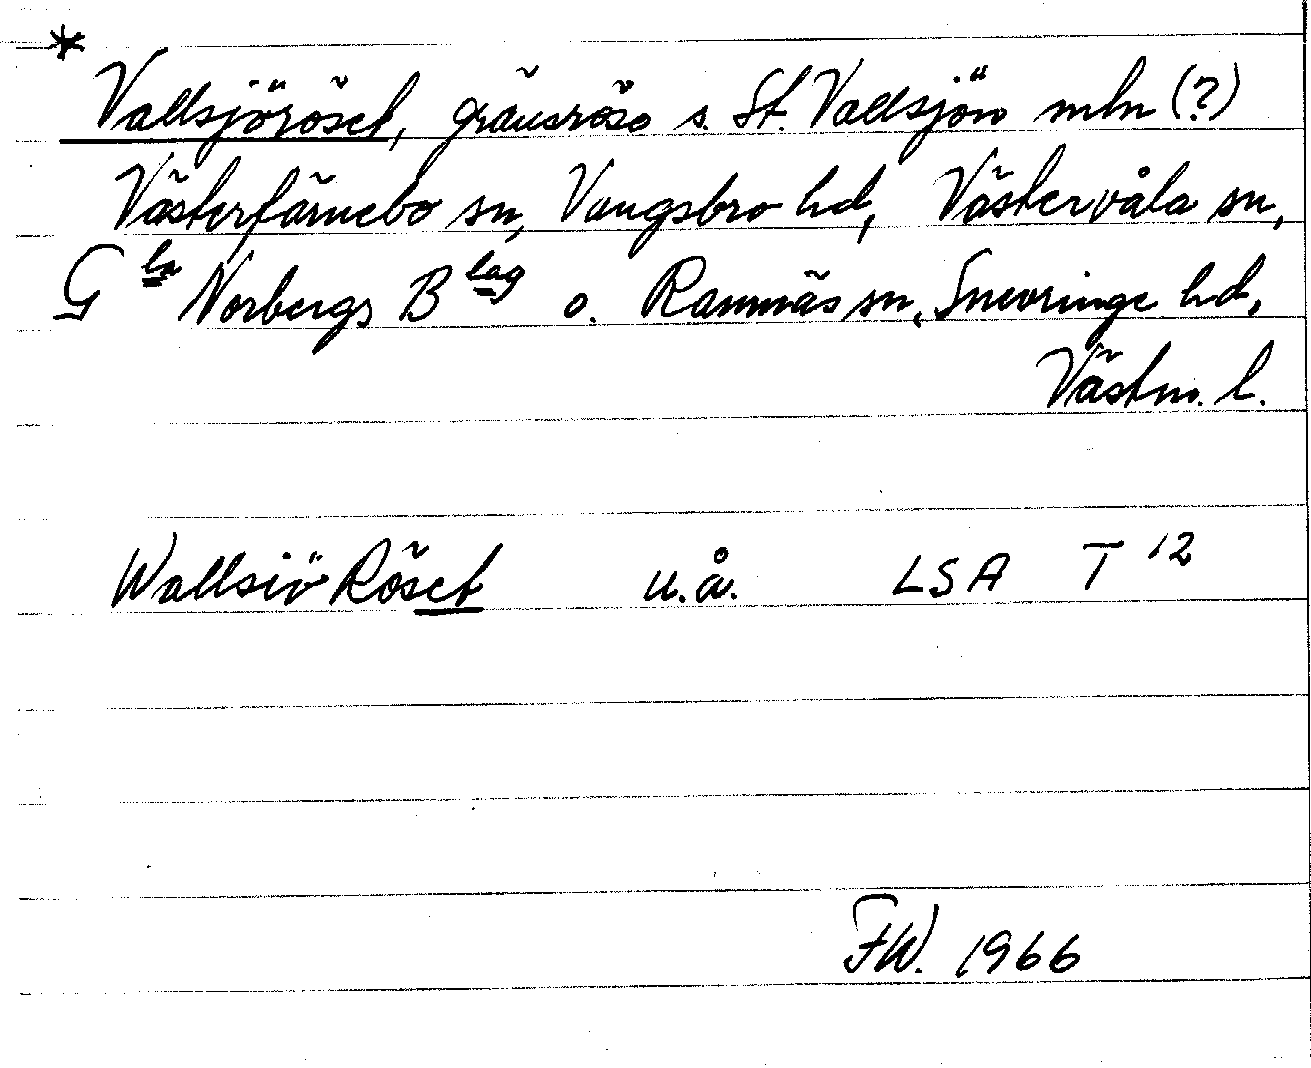 *
Vallsjöröset, gränsröse s. St. Vallsjön mln (?)
Västerfärnebo sn, Vangsbro hd, Västervåla sn,
G la Norbergs B lag o. Ramnäs sn, Snevringe hd,
Västm. l.
Wallsiö Röset u.å. LSA T 12
FW. 1966